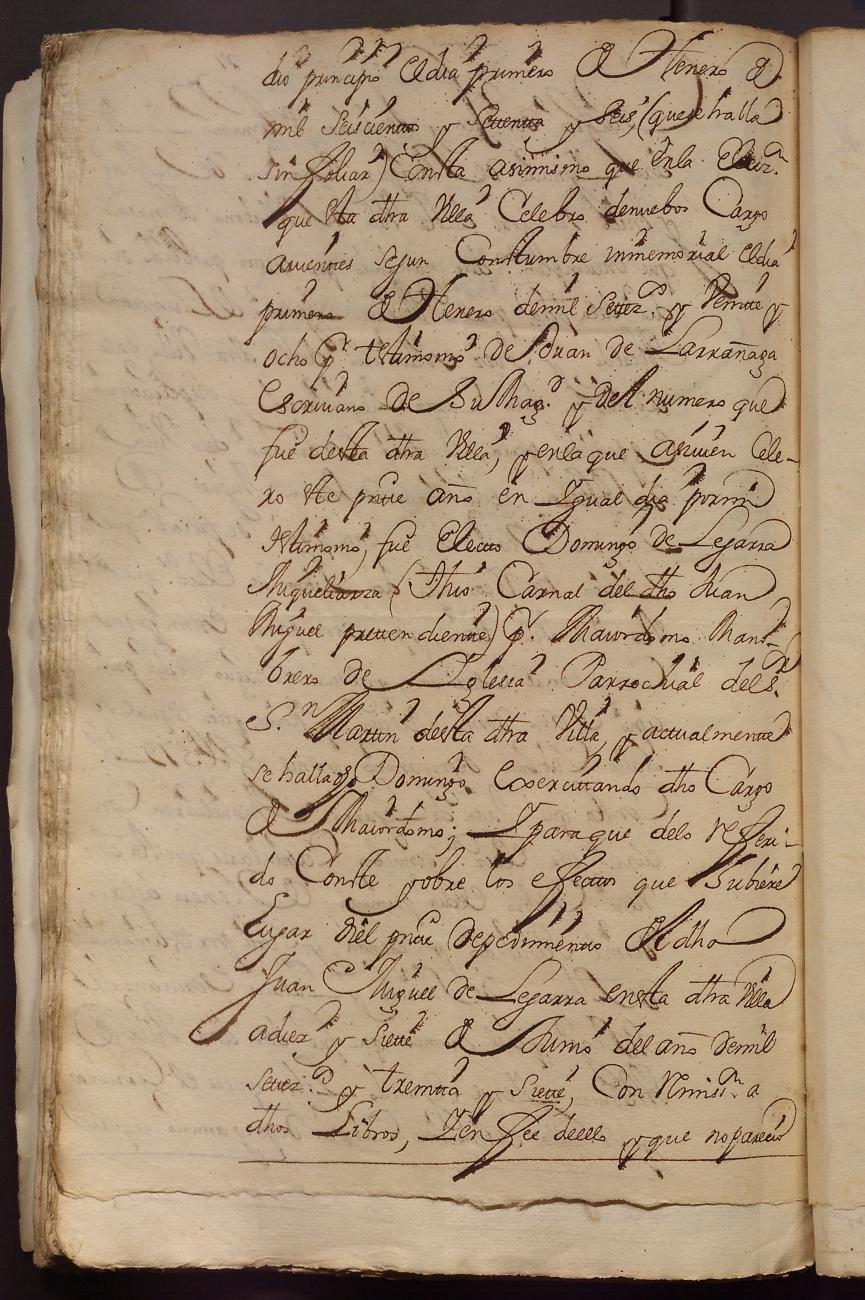 dio principio el dia primero de Henero de
mil seiscientos y settenta y seis, (que se halla
sin foliar) Consta asimismo que en la Elecz.n
que esta dha Villa Celebro de nuebos Cargo
avientes segun Constumbre inmemorial el dia
primero de Henero de mil settez.os y Veintte y
ocho p.r testimonio de Juan de Larrañaga
escrivano de Su Mag.d y del numero que
fue desta dha Villa, y en la que asivien Cele-
ro este pntte año en Igual dia por mi
testimonio, fue Electo Domingo de Legarra
Miqueliarza (Thio Carnal del dho Juan
Miguel pretten diente) p.r Maiordomo Man-
brero de Iglesia Parrochial del S.r
S.n Martin desta dha Villa, y actualmente
se halla dho Domingo exercittando dho Cargo
de Maiordomo; Y para que delo referi-
do Conste y obre los efectos que hubiere
Lugar di el pntte de pedimiento del dho
Juan Miguel de Legarra en esta dha Villa
a diez y siette de Junio del año de mil
settez.os y treintta y siette, Con Remiss.n a
dhos Libros, Y en fee de ello y que no parecio